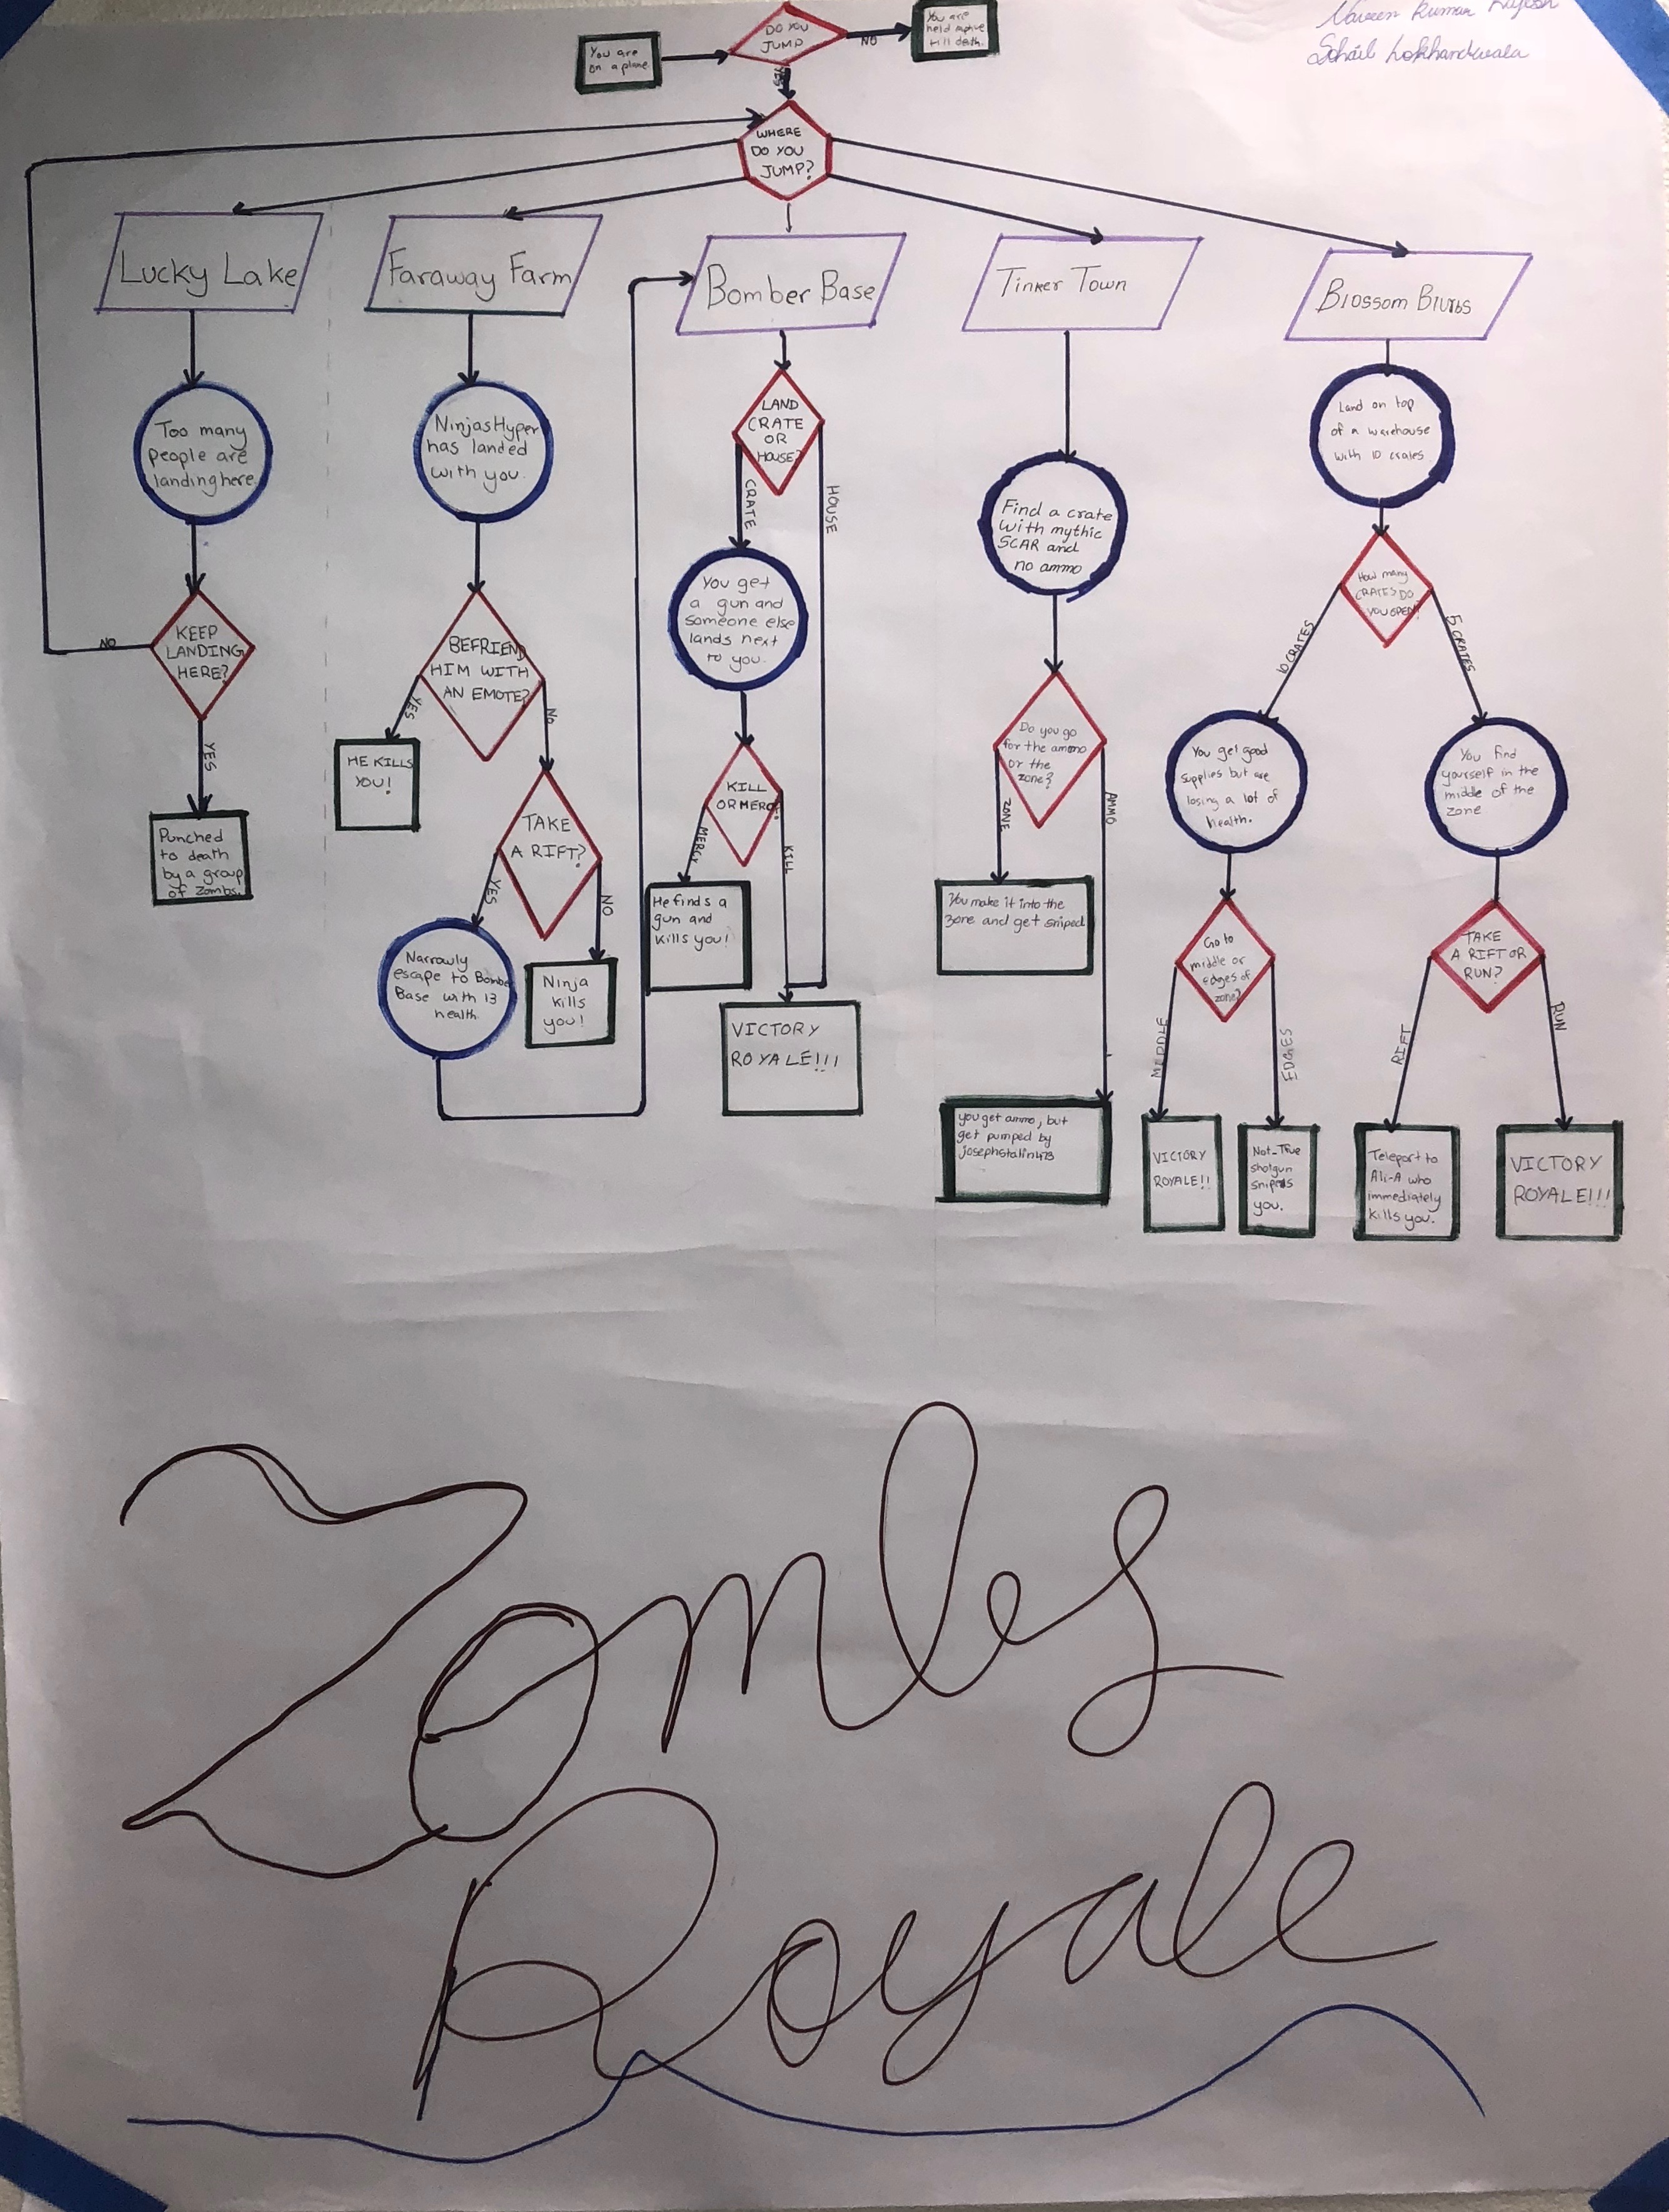 Naveen Kumar Rajesh
Sohail Lokhandwala
You are
on a plane.
DO YOU
JUMP
NO
You are
held captive
till death.
YES
WHERE
DO YOU
JUMP?
Lucky Lake
Too many
people are
landing here.
KEEP
LANDING
HERE?
NO
YES
Punched
to death
by a group
of Zombs.
Faraway Farm
NinjasHyper
has landed
with you.
BEFRIEND
HIM WITH
AN EMOTE?
YES
NO
HE KILLS
YOU!
TAKE
A RIFT?
YES
NO
Narrowly
escape to Bomber
Base with 13
health.
Ninja
kills
you!
Bomber Base
LAND
CRATE
OR
HOUSE?
CRATE
HOUSE
You get
a gun and
someone else
lands next
to you.
KILL
OR MERCY?
MERCY
KILL
He finds a
gun and
kills you!
VICTORY
ROYALE!!!
Tinker Town
Find a crate
with mythic
SCAR and
no ammo
Do you go
for the ammo
or the
zone?
ZONE
AMMO
You make it into the
zone and get sniped
you get ammo, but
get pumped by
josephstalin473
Blossom Blurbs
Land on top
of a warehouse
with 10 crates.
How many
CRATES DO
YOU OPEN?
10 CRATES
5 CRATES
You get good
supplies but are
losing a lot of
health.
Go to
middle or
edges of
zone?
MIDDLE
EDGES
VICTORY
ROYALE!!
Not-Tfue
shotgun
snipes
you.
You find
yourself in the
middle of the
zone
TAKE
A RIFT OR
RUN?
RIFT
RUN
Teleport to
Ali-A who
immediately
kills you.
VICTORY
ROYALE!!!
Zombs
Royale